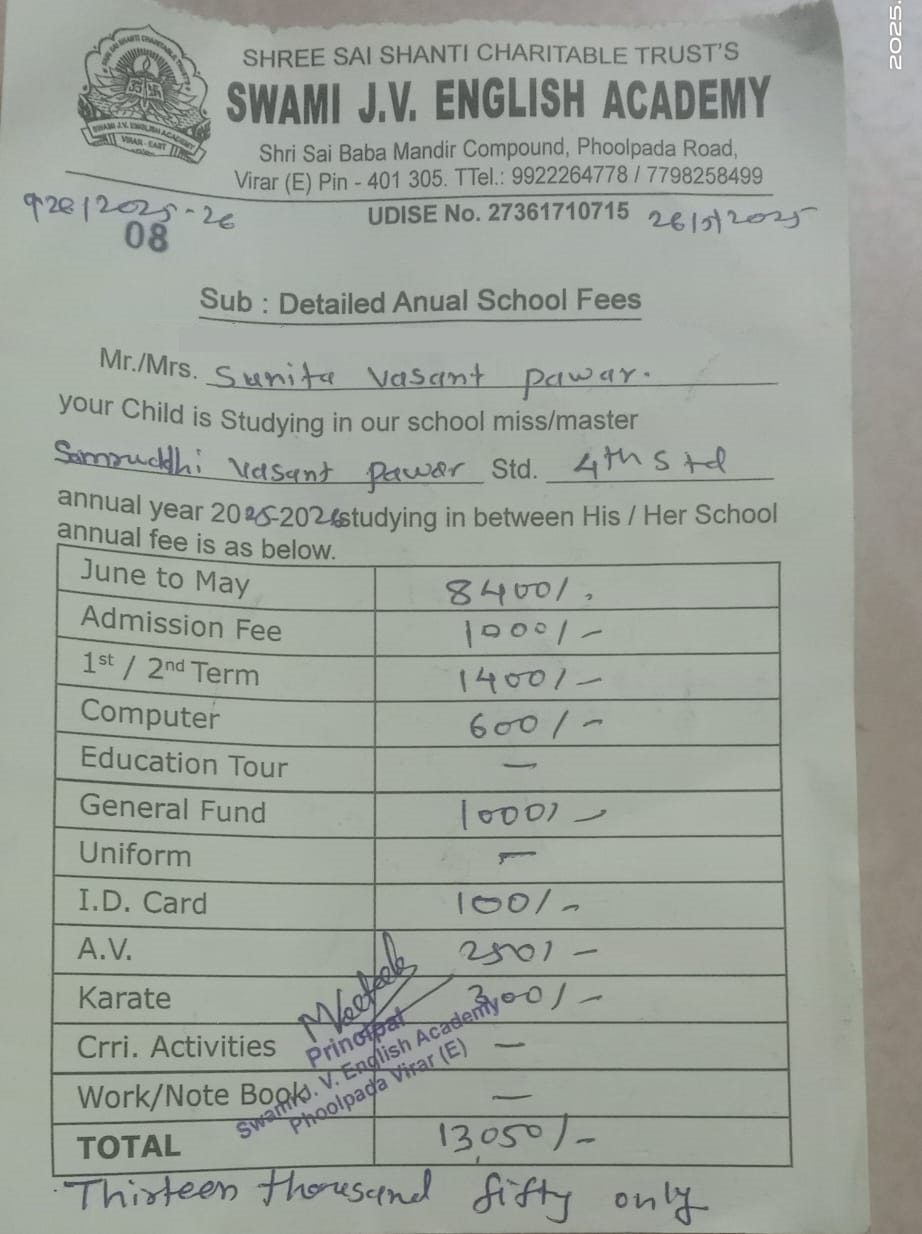 2025.
SHREE SAI SHANTI CHARITABLE TRUST'S
SWAMI J.V. ENGLISH ACADEMY
SWAMI J.V. ENGLISH ACADEMY
VIRAR - EAST
Shri Sai Baba Mandir Compound, Phoolpada Road,
Virar (E) Pin - 401 305. TTel.: 9922264778 / 7798258499
UDISE No. 27361710715 26/5/2025
/2025-26
08
Sub : Detailed Anual School Fees
Mr./Mrs. Sunita Vasant Pawar.
your Child is Studying in our school miss/master
Samruddhi Vasant Pawar Std. 4th Std
annual year 2025-2026 studying in between His / Her School
annual fee is as below.
June to May 8400/-
Admission Fee 1000/-
1st / 2nd Term 1400/-
Computer 600/-
Education Tour —
General Fund 1000/-
Uniform —
I.D. Card 100/-
A.V. 250/-
Karate 300/-
Crri. Activities —
Work/Note Book —
TOTAL 13,050/-
Principal
Swami J. V. English Academy
Phoolpada Virar (E)
Thirteen thousand fifty only